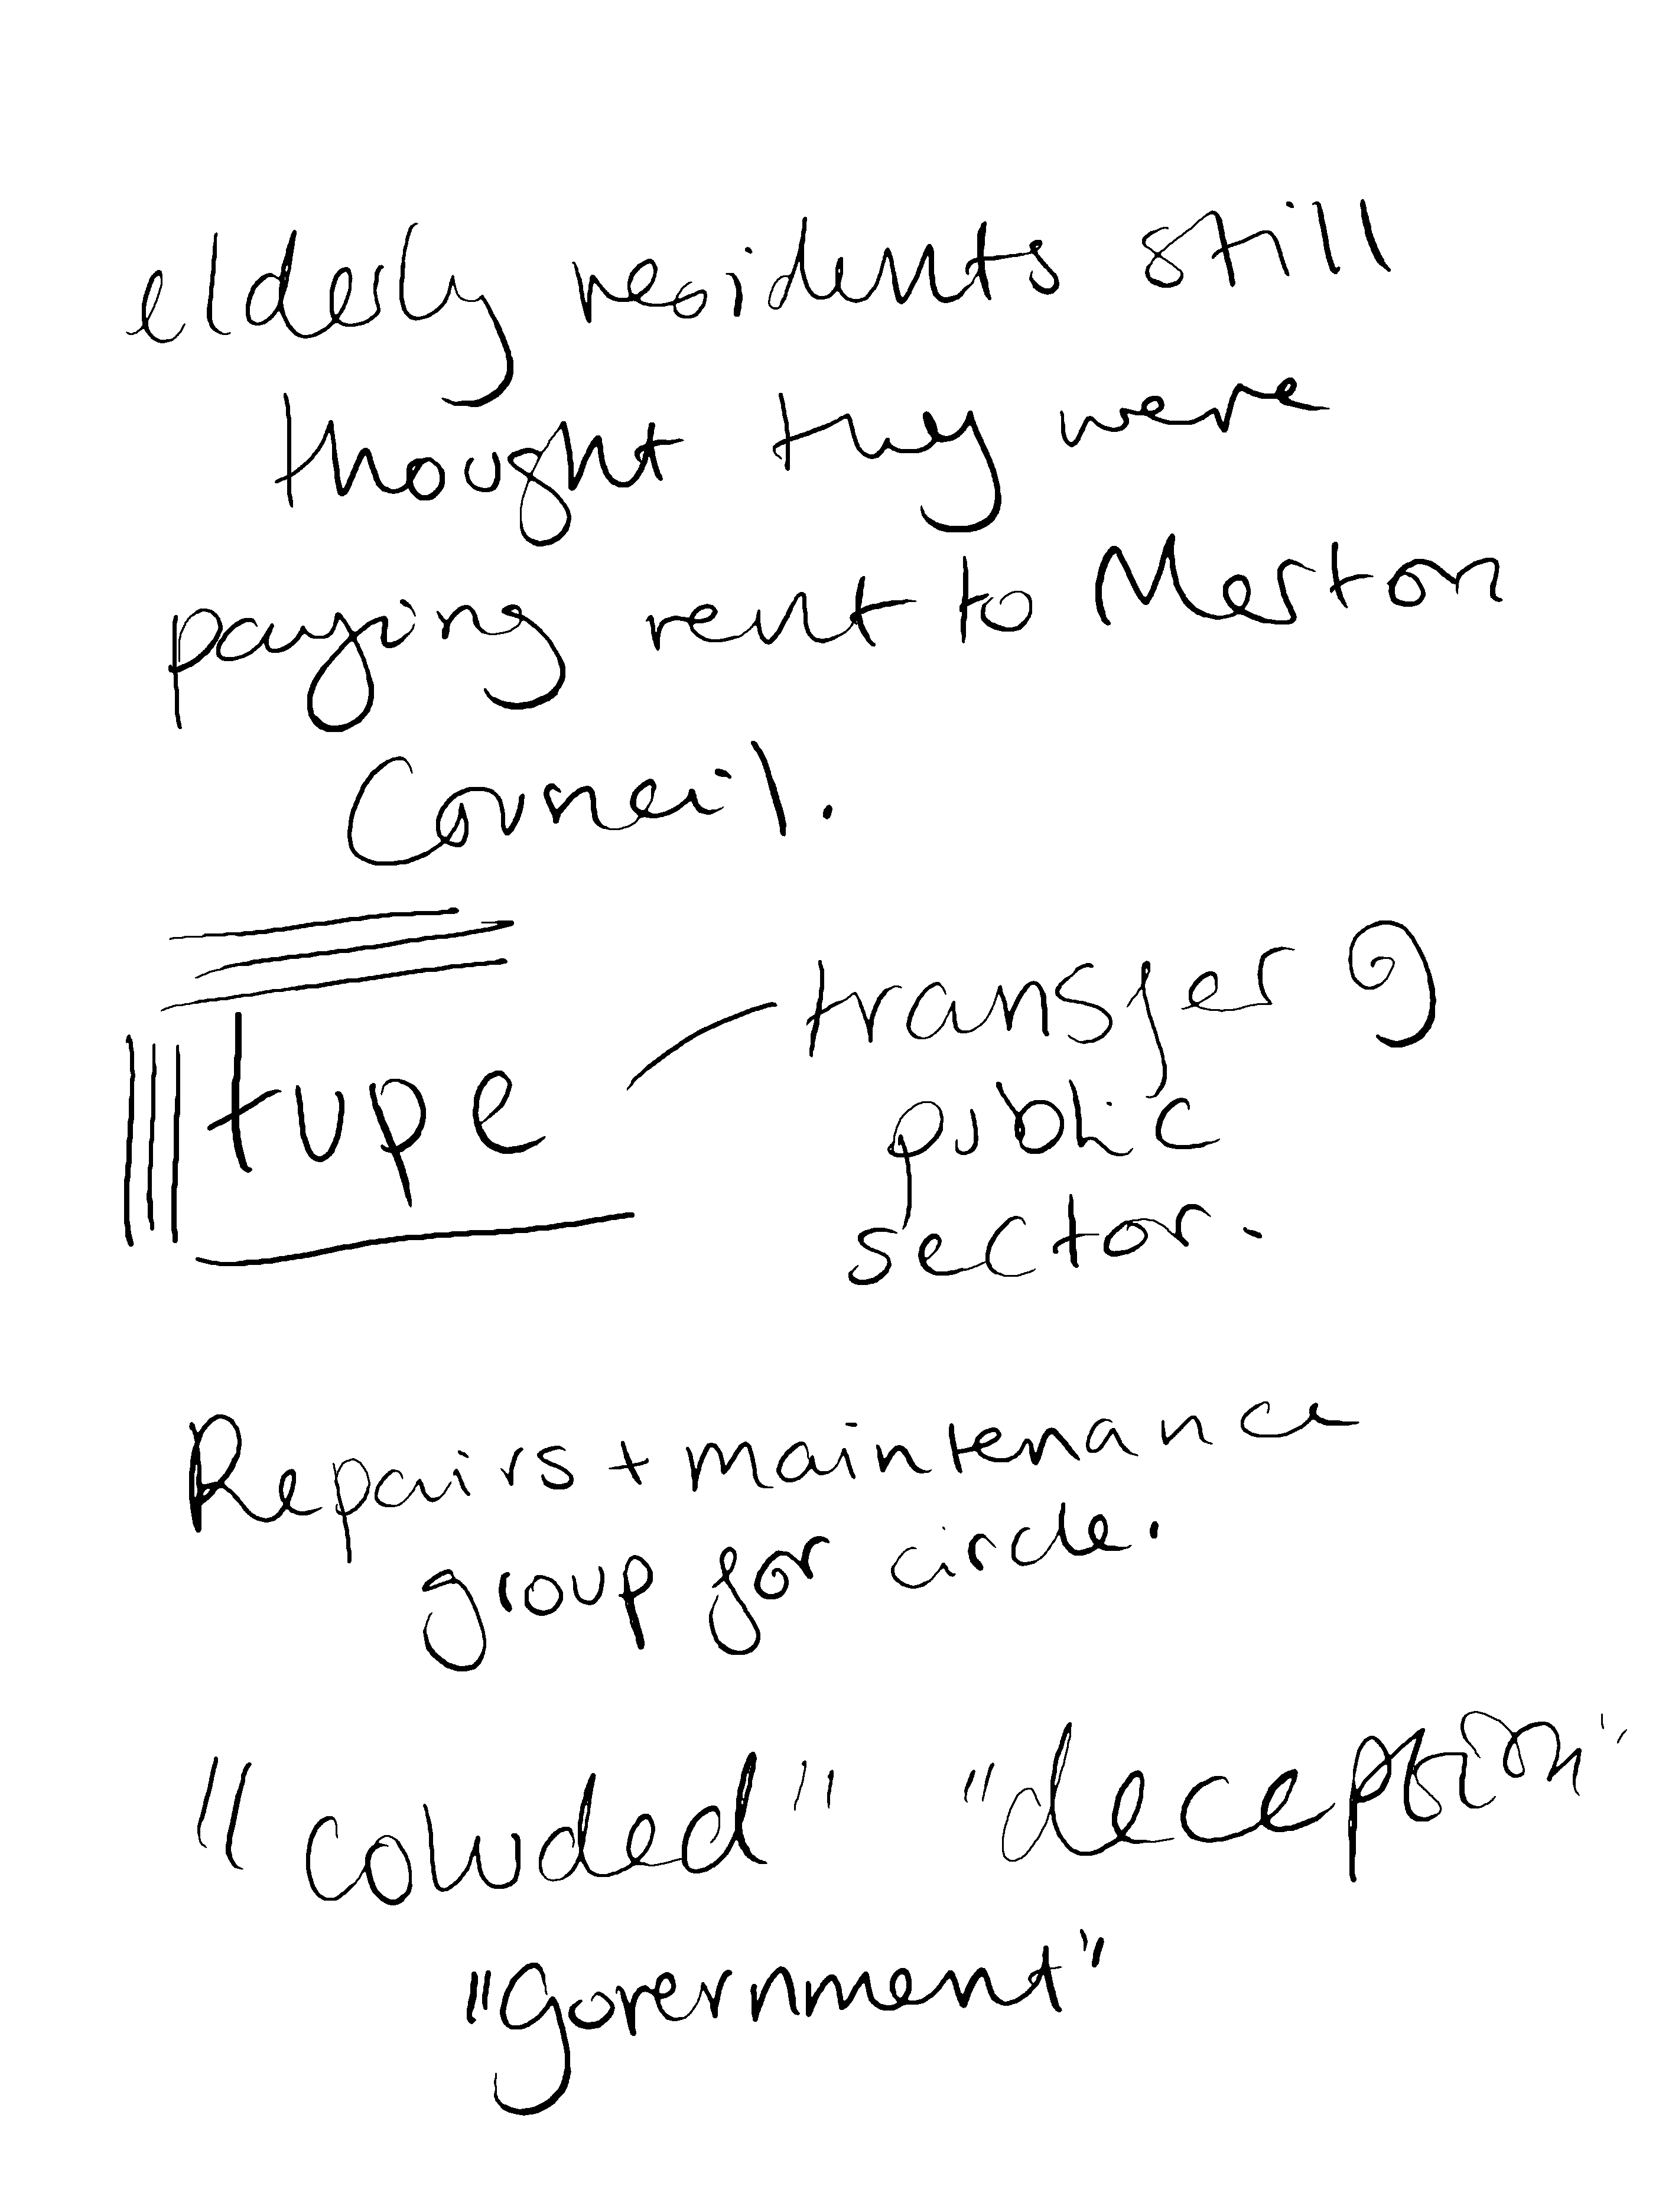 elderly residents still
thought they were
paying rent to Merton
Council.
tupe - transfer of
public
sector.
Repairs + maintenance
group for circle.
"coluded" "deception"
"government"